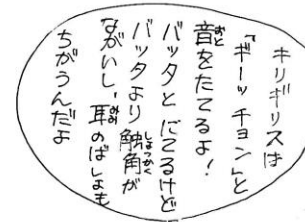 キリギリスは
「ギーッチョン」と
音をたてるよ！
バッタとにてるけど
バッタより触角が
ながいし、耳のばしょも
ちがうんだよ